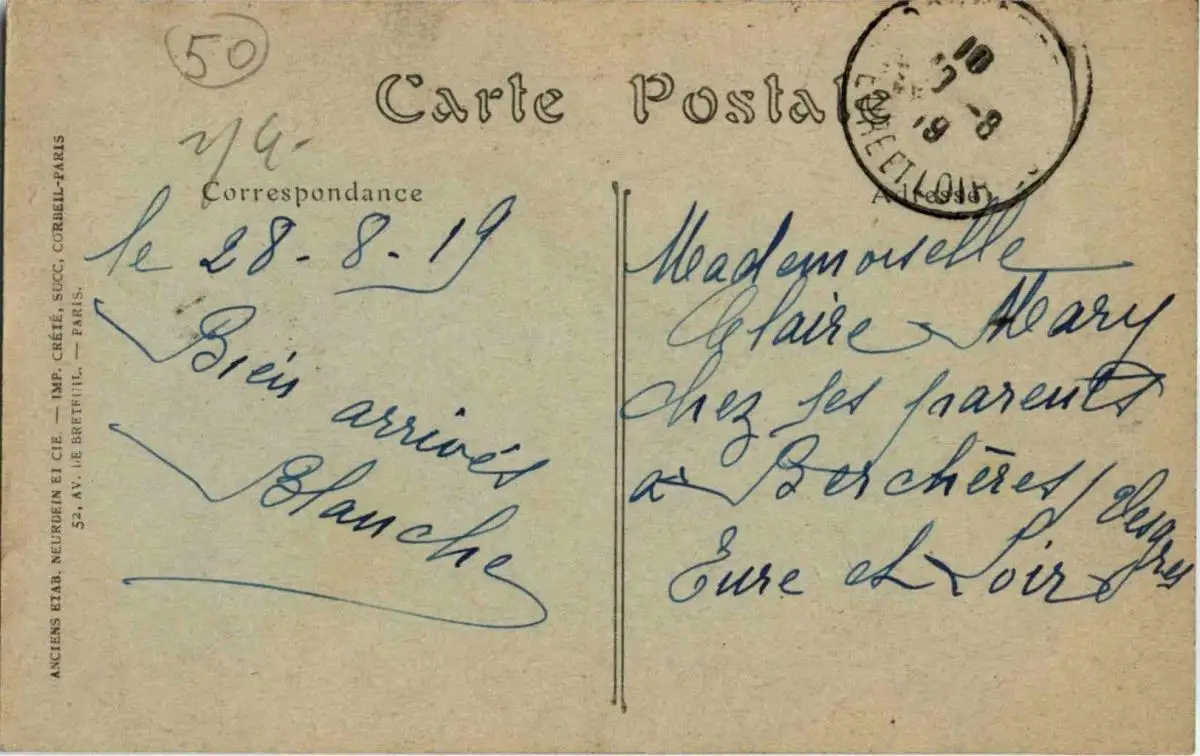 50
Carte Postale
Correspondance
Adresse
10
-8
19
EURE ET LOIR
le 28-8-19
Bien arrivés
Blanche
Mademoiselle
Claire Mary
chez ses parents
à Berchères/
Eure et Loir
ANCIENS ETAB. NEURDEIN ET CIE. — IMP. CRÉTÉ, SUCC, CORBEIL-PARIS
52, AV. DE BRETEUIL. — PARIS.